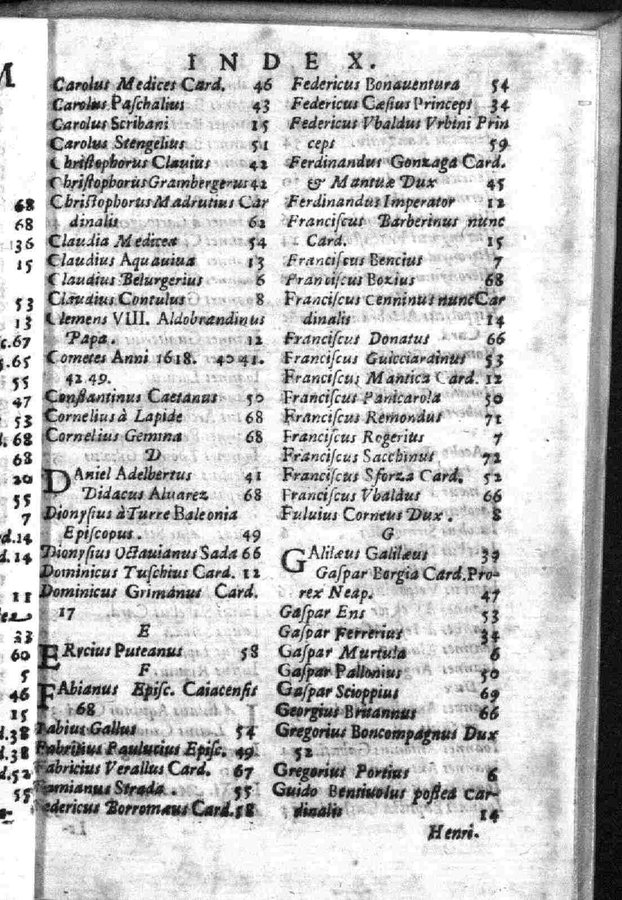 M
68
68
136
15
53
13
c.67
s.65
55
47
53
d. 68
68
20
55
7
rd.14
d. 14
11
33
60
5
46
15
d.38
d.38
d.52
55
INDEX.
Carolus Medices Card. 46
Carolus Paſchalius 43
Carolus Scribani 15
Carolus Stengelius 51
Chriſtophorus Clauius 42
Chriſtophorus Grambergerus 42
Chriſtophorus Madrutius Car
dinalis 62
Claudia Medicea 54
Claudius Aquauiua 13
Claudius Belurgerius 6
Claudius Contulus 8
Clemens VIII. Aldobrandinus
Papa. 12
Cometes Anni 1618. 40 41.
42 49.
Conſtantinus Caetanus 50
Cornelius à Lapide 68
Cornelius Gemma 68
D
DAniel Adelbertus 41
Didacus Aluarez 68
Dionyſius à Turre Baleonia
Epiſcopus. 49
Dionyſius Octauianus Sada 66
Dominicus Tuſchius Card. 12
Dominicus Grimanus Card.
17
E
ERycius Puteanus 58
F
FAbianus Epiſc. Caiacenſis
68
Fabius Gallus 54
Fabritius Paulutius Epiſc. 49
Fabricius Verallus Card. 67
Famianus Strada. 55
Federicus Borromæus Card. 58
Federicus Bonauentura 54
Federicus Cæſius Princeps 34
Federicus Vbaldus Vrbini Prin
ceps 59
Ferdinandus Gonzaga Card.
& Mantuæ Dux 45
Ferdinandus Imperator 12
Franciſcus Barberinus nunc
Card. 15
Franciſcus Bencius 7
Franciſcus Bozius 68
Franciſcus Cenninus nunc Car
dinalis 14
Franciſcus Donatus 66
Franciſcus Guicciardinus 53
Franciſcus Mantica Card. 12
Franciſcus Panicarola 50
Franciſcus Remondus 71
Franciſcus Rogerius 7
Franciſcus Sacchinus 72
Franciſcus Sforza Card. 52
Franciſcus Vbaldus 66
Fuluius Corneus Dux. 8
G
GAlilæus Galilæus 39
Gaſpar Borgia Card. Pro-
rex Neap. 47
Gaſpar Ens 53
Gaſpar Ferrerius 34
Gaſpar Murtula 6
Gaſpar Pallonius 50
Gaſpar Scioppius 69
Georgius Britannus 66
Gregorius Boncompagnus Dux
52
Gregorius Portius 6
Guido Bentiuolus poſtea Car-
dinalis 14
Henri.